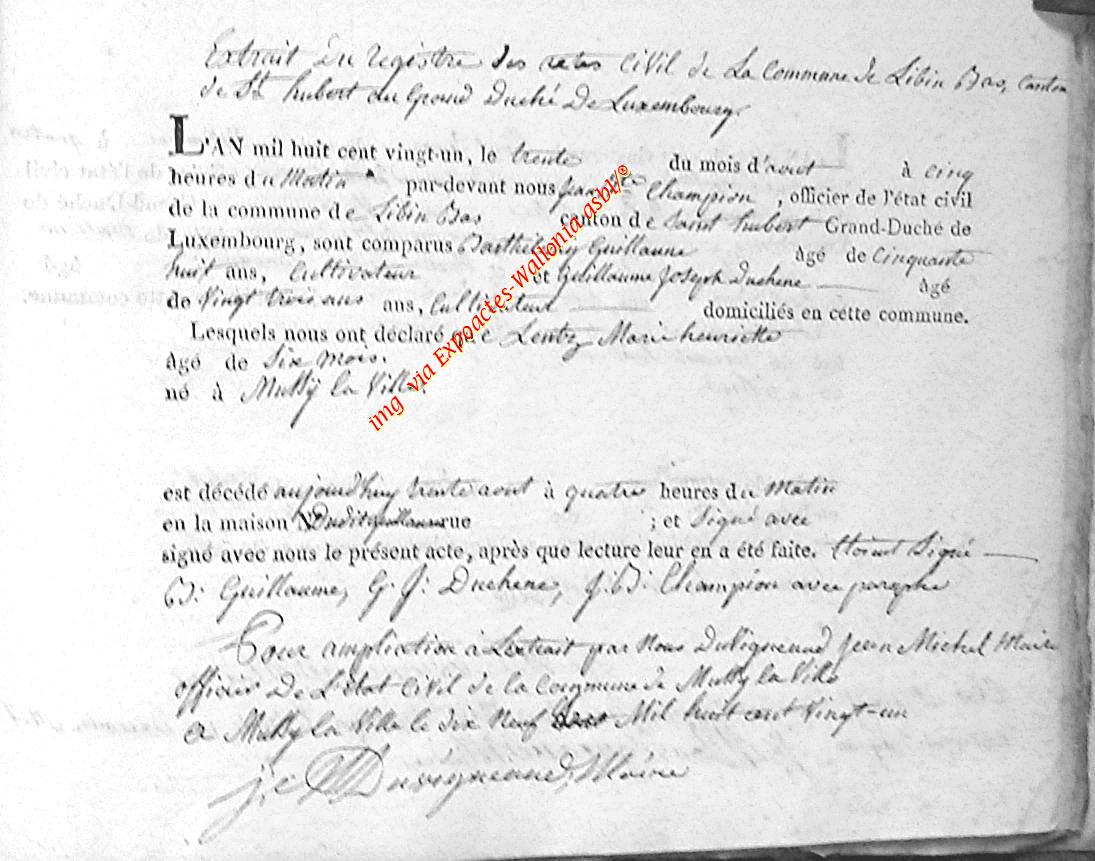 Extrait du registre des actes Civil de La Commune de Libin Bas, Canton
de St hubert au Grand Duché De Luxembourg.
L'AN mil huit cent vingt-un, le trente du mois d'aout à cinq
heures du Matin par-devant nous Jean Champion, officier de l'état civil
de la commune de Libin Bas canton de Saint hubert Grand-Duché de
Luxembourg, sont comparus Barthélemy Guillaume âgé de Cinquante
huit ans, Cultivateur et Guillaume Joseph Duchene âgé
de Vingt trois ans ans, Cultivateur domiciliés en cette commune.
Lesquels nous ont déclaré que Lentz Marie henriette
âgé de Six mois.
né à Mussy la Ville.
est décédé aujourdhuy trente aout à quatre heures du Matin
en la maison Dudit Guillaume rue ; et Signé avec
signé avec nous le présent acte, après que lecture leur en a été faite. Etoient Signé
B: Guillaume, G: J: Duchene, J: B: Champion avec paraphe
Pour ampliation à Lextrait par Nous Duvigneaud Jean Michel Maire
officier De L'état Civil de la Commune de Mussy la Ville
a Mussy la Ville le dix Neuf Mil huit cent Vingt-un
Duvigneaud, Maire
img via Expoactes-Wallonia.asbl/©